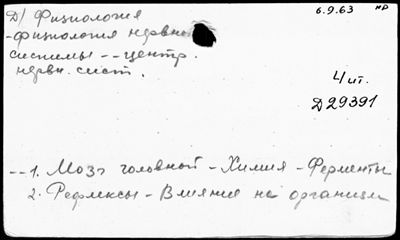 Д/ Физиология
6.9.63 НР
-физиология нервной
системы -- центр.
нервн. сист.
4 ит.
Д29391
--1. Мозг головной - Химия - Ферменты
2. Рефлексы - Влияние на организм